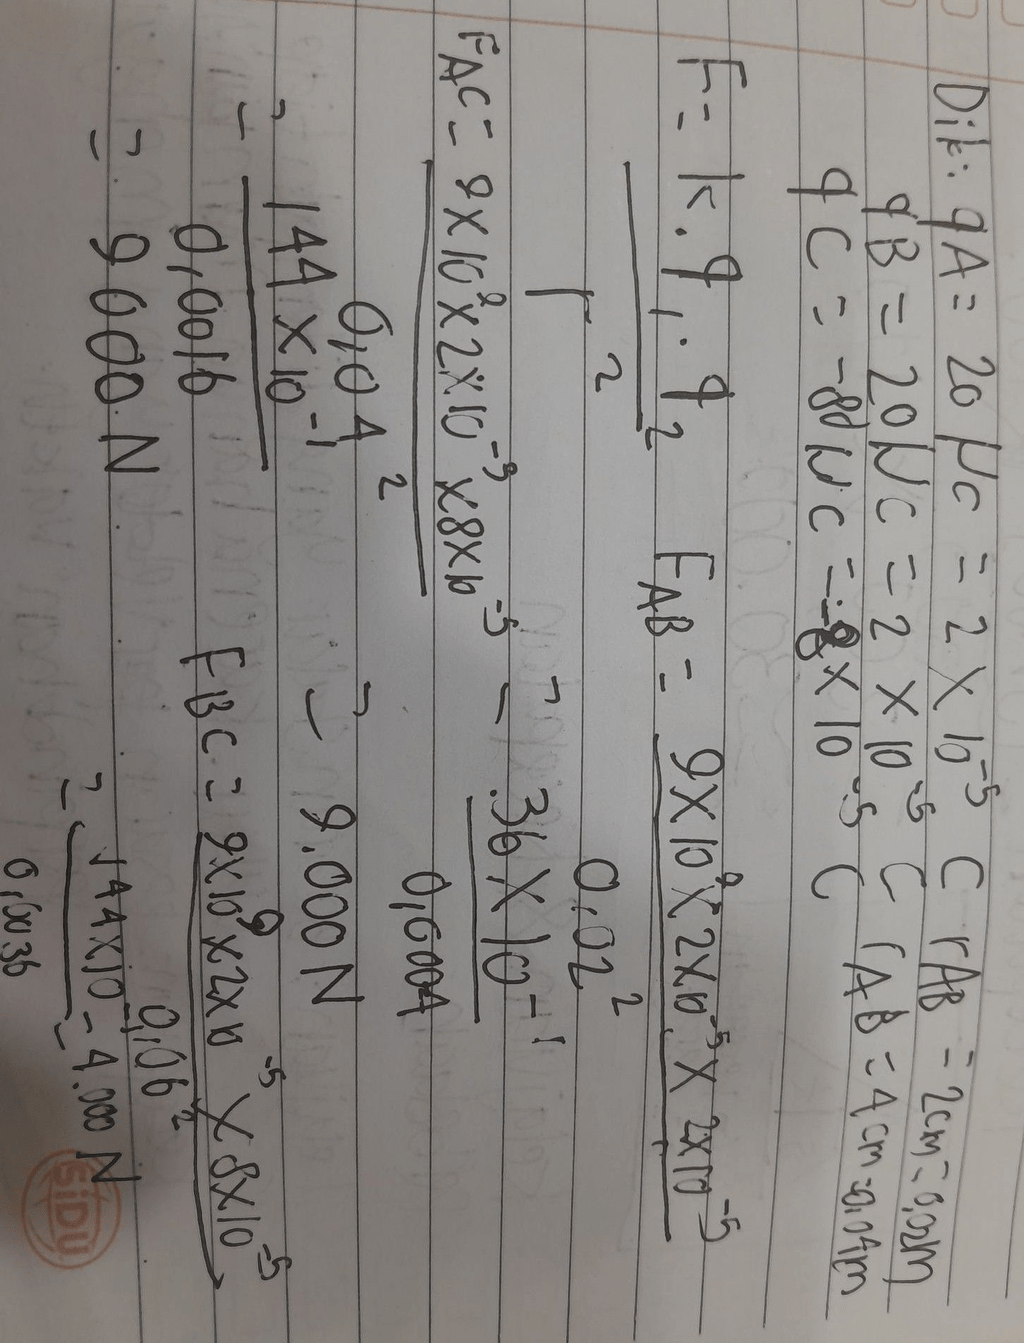 Dik: qA = 20 μc = 2 x 10⁻⁵ C rAB = 2cm = 0,02M
qB = 20 μc = 2 x 10⁻⁵ C rAB = 4 cm = 0,04m
qC = -80 μc = -8 x 10⁻⁵ C
F = k . q₁ . q₂ / r²
F_AB = 9 x 10⁹ x 2 x 10⁻⁵ x 2 x 10⁻⁵ / 0,02²
= 36 x 10⁻¹ / 0,0004
= 9.000 N
F_AC = 9 x 10⁹ x 2 x 10⁻⁵ x 8 x 10⁻⁵ / 0,04²
= 144 x 10⁻¹ / 0,0016
= 9000 N
F_BC = 9 x 10⁹ x 2 x 10⁻⁵ x 8 x 10⁻⁵ / 0,06²
= 144 x 10⁻¹ / 0,0036 = 4.000 N
SIDU